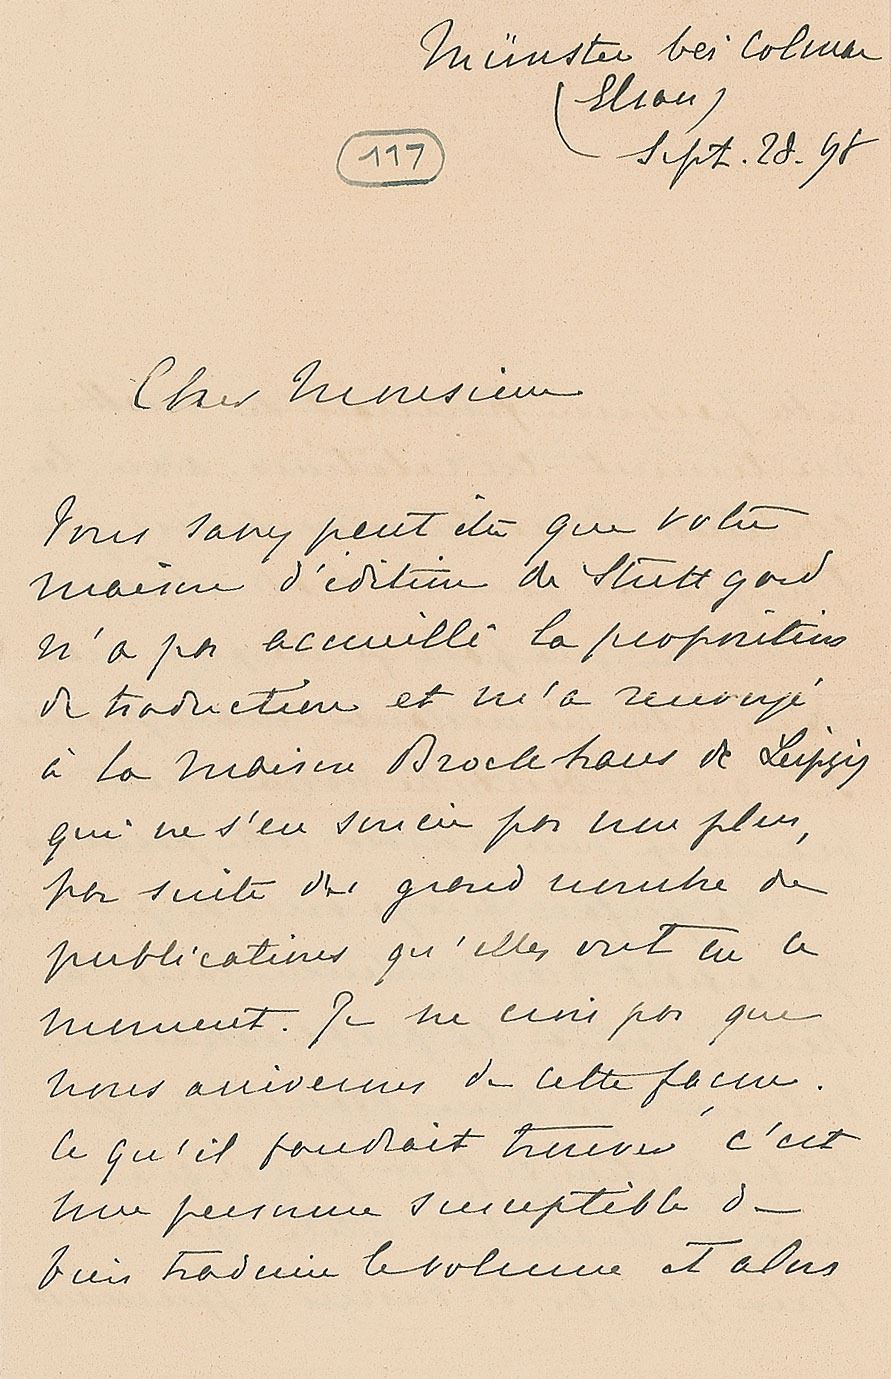 Münster bei Colmar
(Elsau)
Sept. 28. 98
117
Cher Monsieur
Vous savez peut être que votre
maison d'édition de Stuttgard
n'a pas accueilli la propositions
de traduction et m'a renvoyé
à la maison Brockhaus de Leipzig
qui ne s'en soucie pas non plus,
par suite du grand nombre de
publications qu'elles ont en ce
moment. Je ne crois pas que
nous arriverons de cette façon.
Ce qu'il faudrait trouver c'est
une personne susceptible de
bien traduire le volume et alors